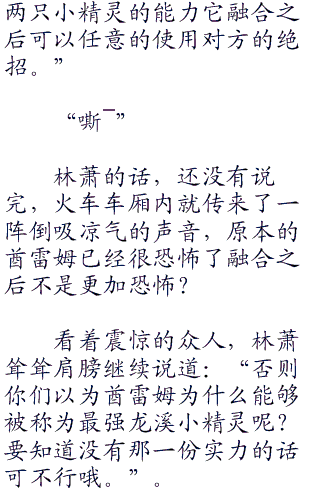 两只小精灵的能力它融合之
后可以任意的使用对方的绝
招。”
“嘶¯”
林萧的话，还没有说
完，火车车厢内就传来了一
阵倒吸凉气的声音，原本的
酋雷姆已经很恐怖了融合之
后不是更加恐怖？
看着震惊的众人，林萧
耸耸肩膀继续说道：“否则
你们以为酋雷姆为什么能够
被称为最强龙溪小精灵呢？
要知道没有那一份实力的话
可不行哦。”。